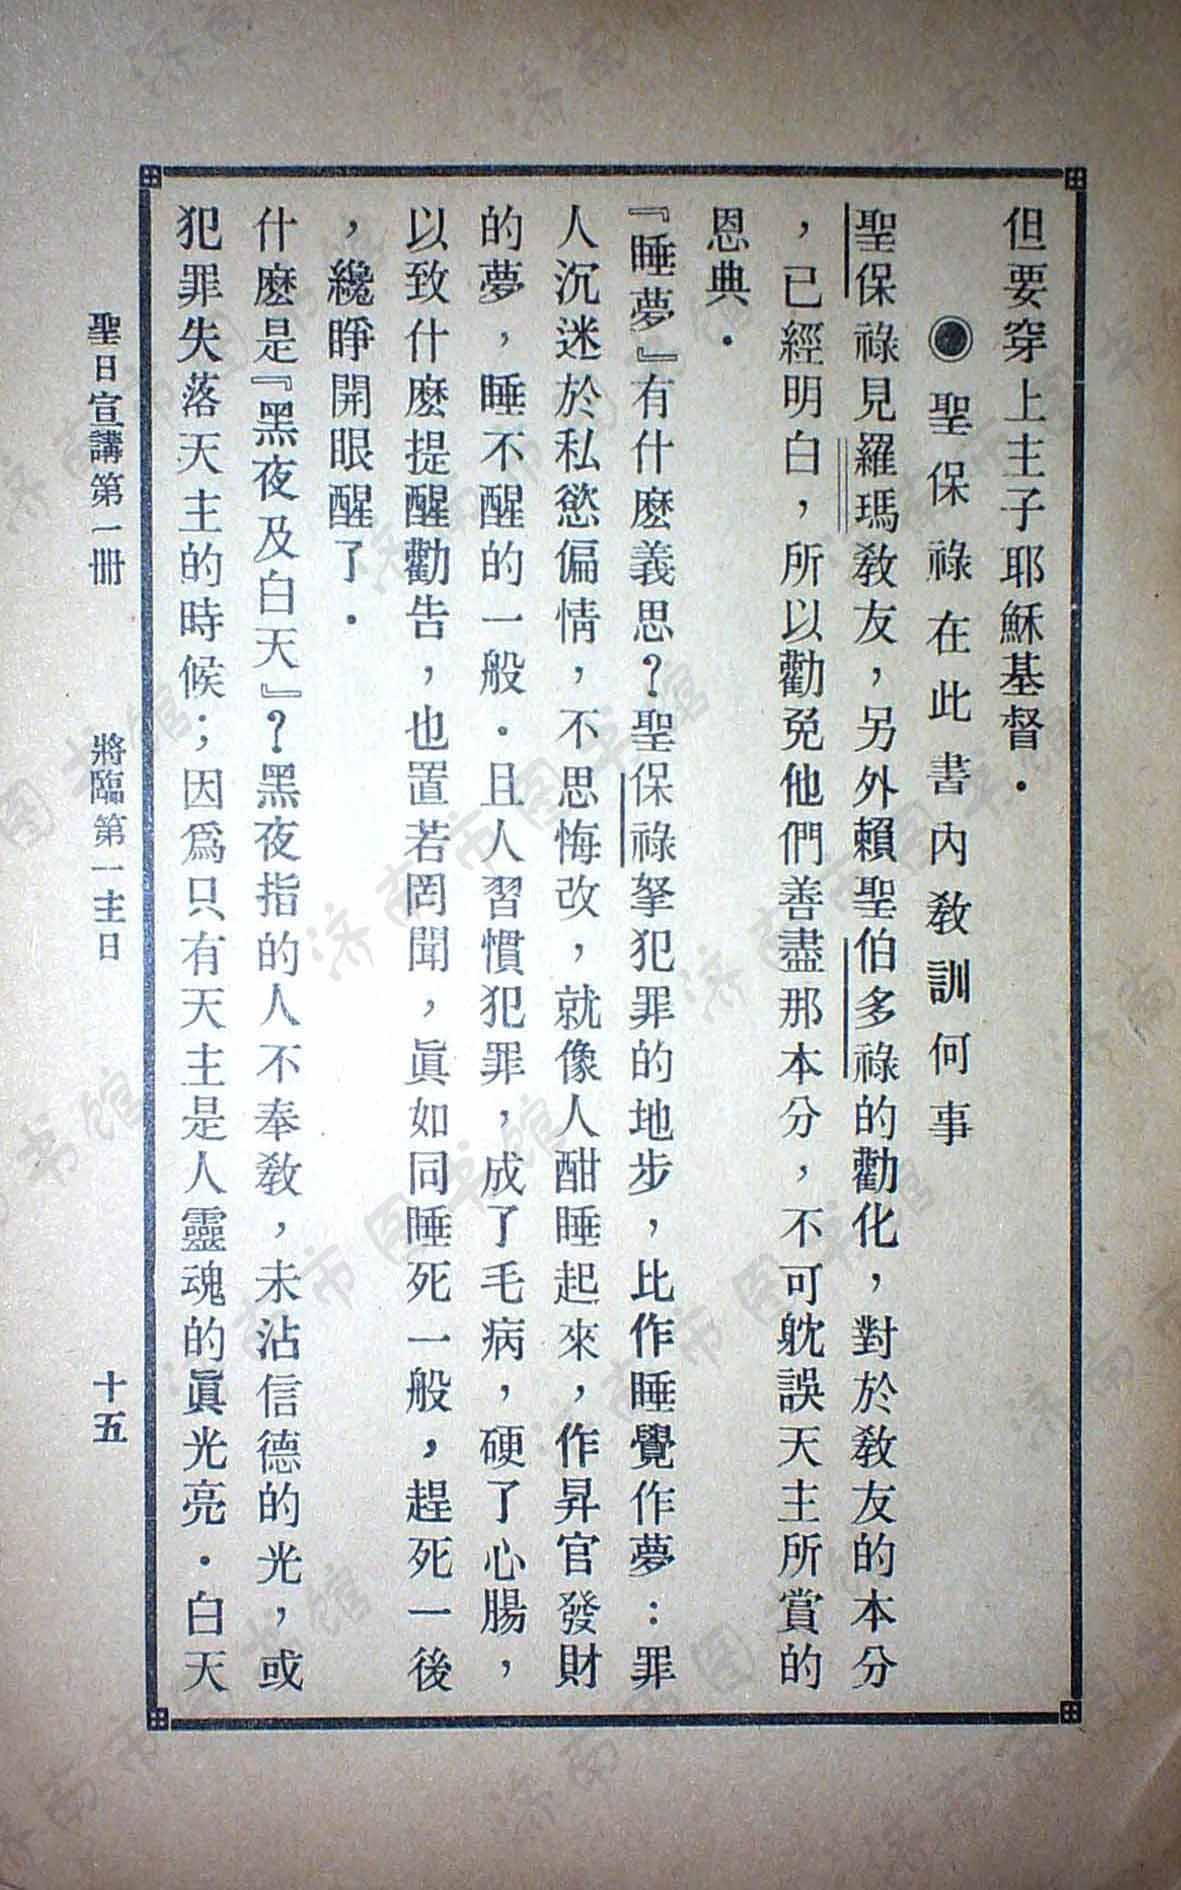 但要穿上主子耶穌基督．
◉聖保祿在此書內教訓何事
聖保祿見羅瑪教友，另外賴聖伯多祿的勸化，對於教友的本分
，已經明白，所以勸免他們善盡那本分，不可躭誤天主所賞的
恩典．
『睡夢』有什麽義思？聖保祿拏犯罪的地步，比作睡覺作夢：罪
人沉迷於私慾偏情，不思悔改，就像人酣睡起來，作昇官發財
的夢，睡不醒的一般．且人習慣犯罪，成了毛病，硬了心腸，
以致什麽提醒勸告，也置若罔聞，眞如同睡死一般，趕死一後
，纔睜開眼醒了．
什麽是『黑夜及白天』？黑夜指的人不奉教，未沾信德的光，或
犯罪失落天主的時候；因爲只有天主是人靈魂的眞光亮．白天
聖日宣講第一冊　將臨第一主日　十五
济南市图书馆